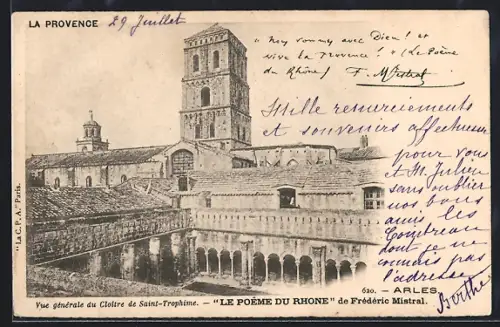 LA PROVENCE
29 Juillet
" Nous sommes avec Dieu ! et
vive la Provence ! " (Le Poème
du Rhône) F. Mistral
Mille remerciements
et souvenirs affectueux
pour vous
et M. Julien
sans oublier
nos bons
amis les
dont je ne
connais pas
l'adresse
Berthe
"La C. P. A." Paris.
620. — ARLES.
Vue générale du Cloître de Saint-Trophime. — "LE POÈME DU RHONE" de Frédéric Mistral.